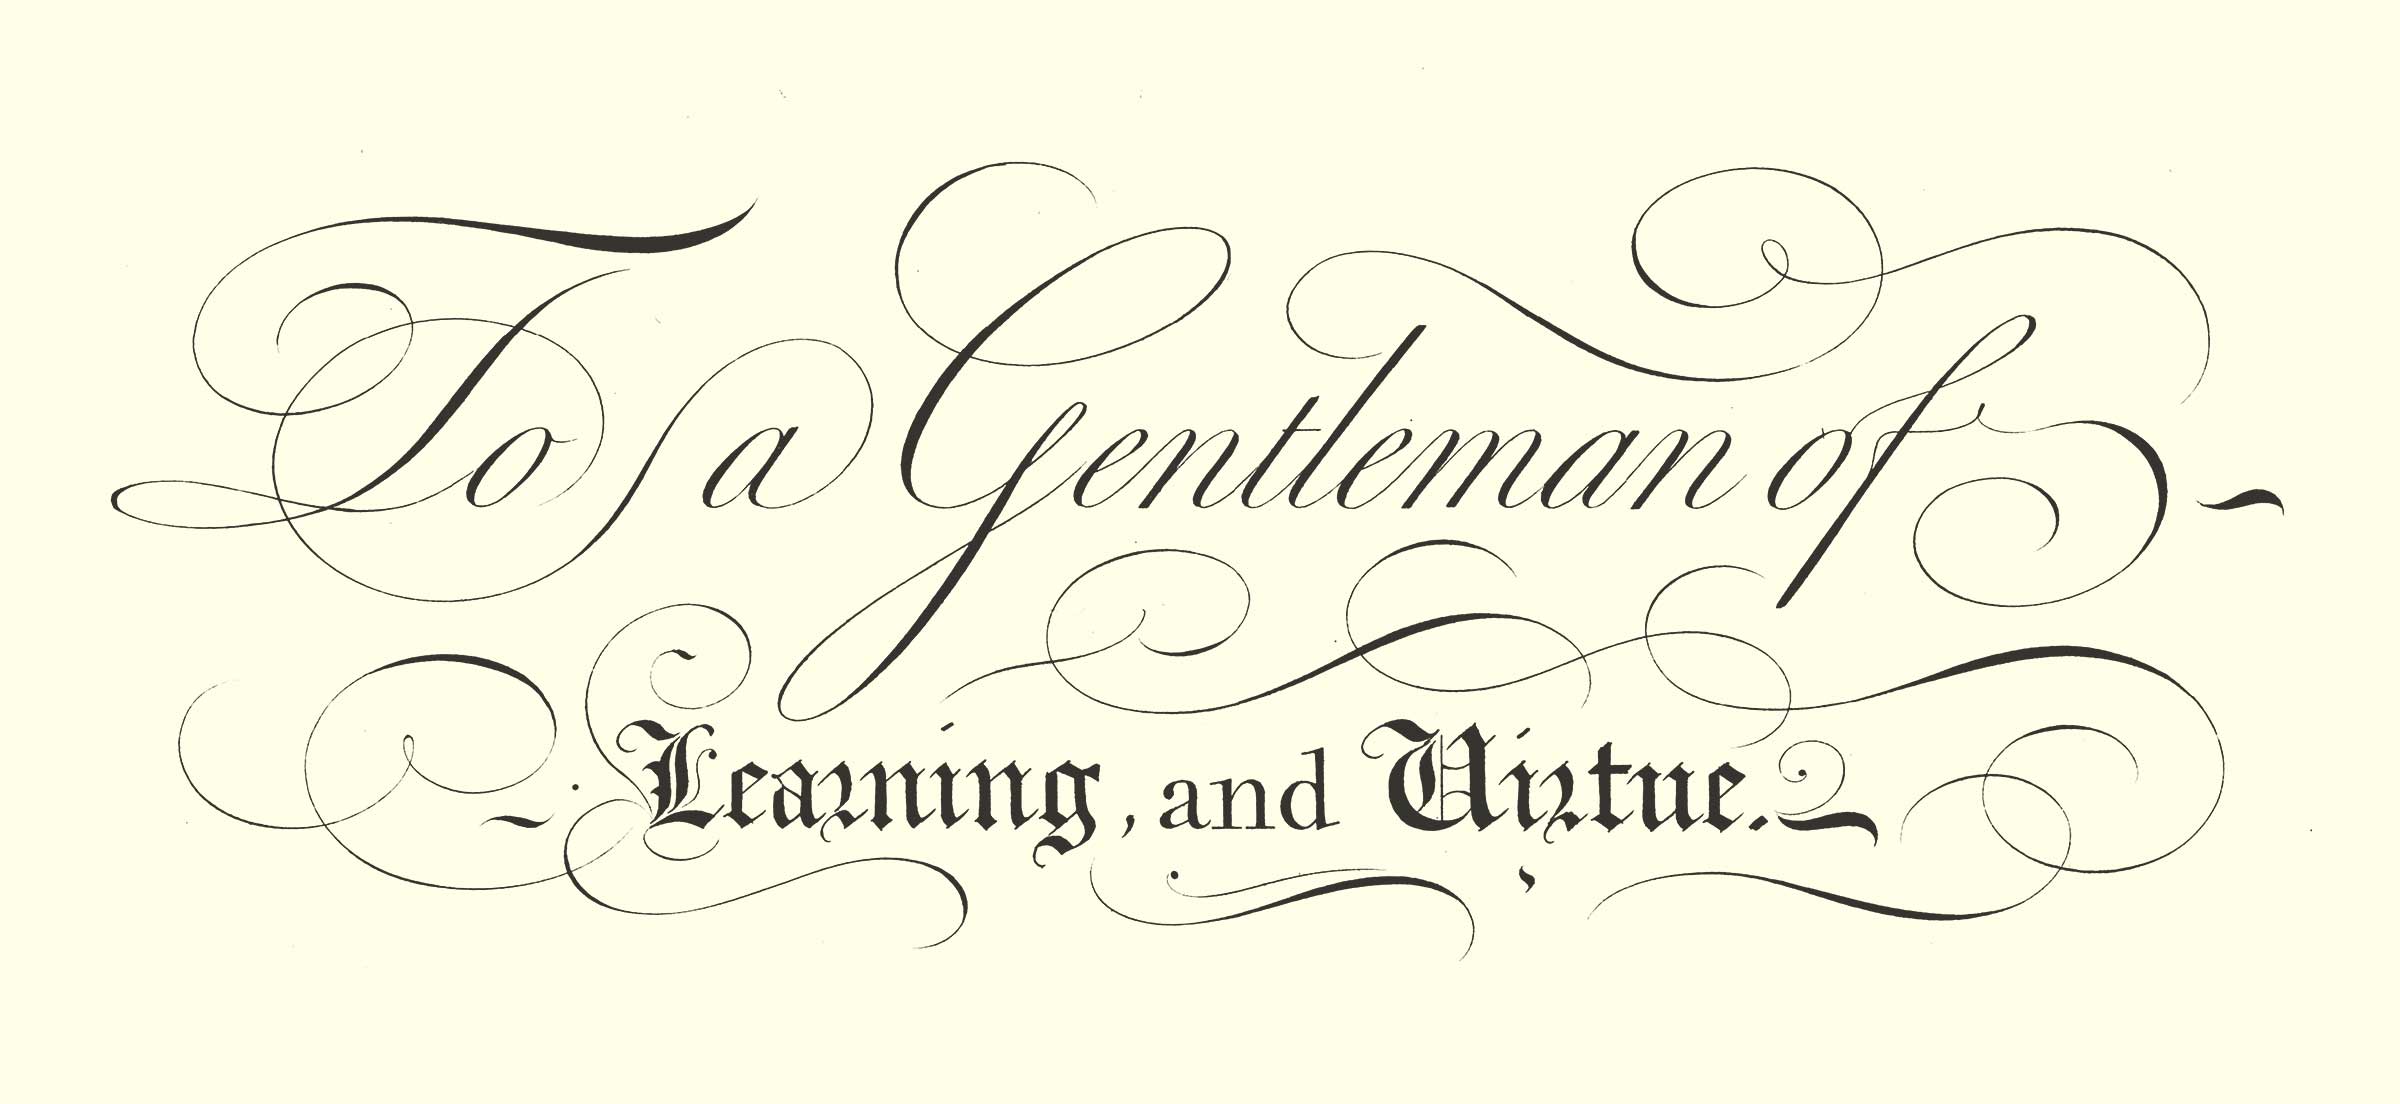 To a Gentleman of
Learning, and Virtue.